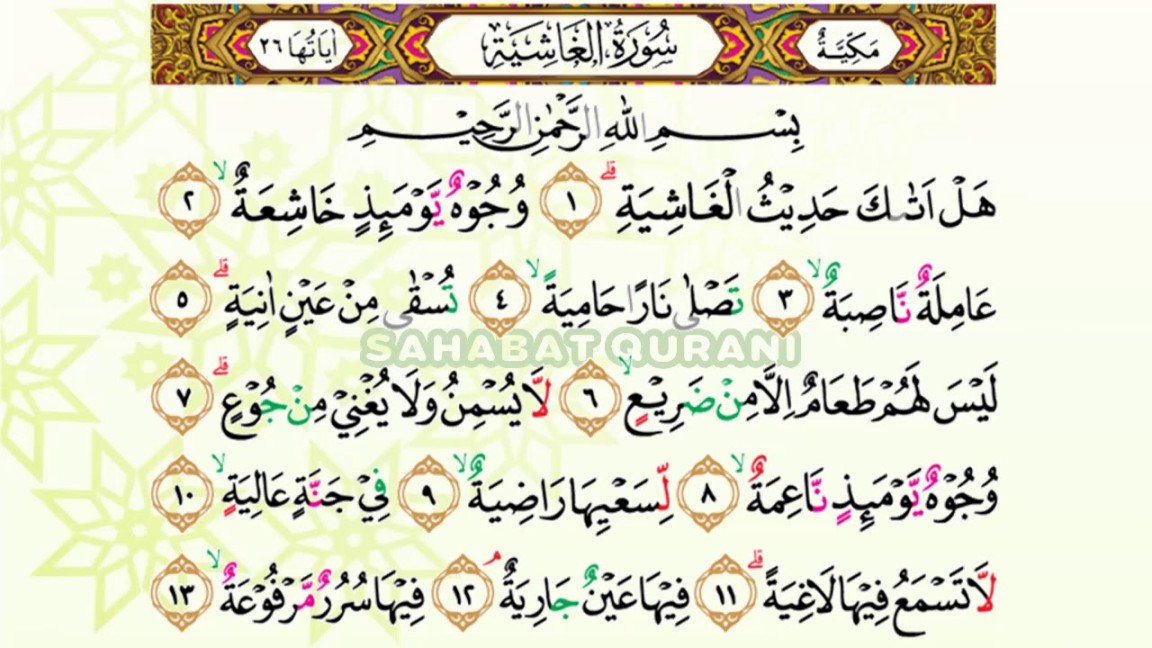 مَكِّيَّةٌ سُورَةُ الْغَاشِيَةِ اٰيَاتُهَا ٢٦
بِسْمِ اللّٰهِ الرَّحْمٰنِ الرَّحِيْمِ
هَلْ اَتٰىكَ حَدِيْثُ الْغَاشِيَةِ ۗ ١ وُجُوْهٌ يَّوْمَىِٕذٍ خَاشِعَةٌ ۙ ٢
عَامِلَةٌ نَّاصِبَةٌ ۙ ٣ تَصْلٰى نَارًا حَامِيَةً ۙ ٤ تُسْقٰى مِنْ عَيْنٍ اٰنِيَةٍ ۗ ٥
SAHABAT QURANI
لَيْسَ لَهُمْ طَعَامٌ اِلَّا مِنْ ضَرِيْعٍ ۙ ٦ لَّا يُسْمِنُ وَلَا يُغْنِيْ مِنْ جُوْعٍ ۗ ٧
وُجُوْهٌ يَّوْمَىِٕذٍ نَّاعِمَةٌ ۙ ٨ لِّسَعْيِهَا رَاضِيَةٌ ۙ ٩ فِيْ جَنَّةٍ عَالِيَةٍ ۙ ١٠
لَّا تَسْمَعُ فِيْهَا لَاغِيَةً ۗ ١١ فِيْهَا عَيْنٌ جَارِيَةٌ ۘ ١٢ فِيْهَا سُرُرٌ مَّرْفُوْعَةٌ ۙ ١٣